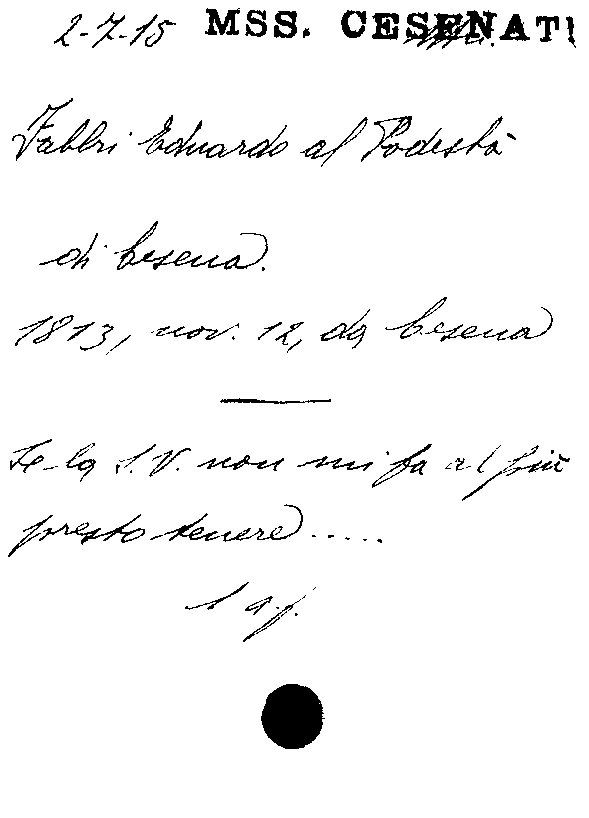 2-7-15 MSS. CESENATI
Fabbri Eduardo al Podestà
di Cesena.
1813, nov. 12, da Cesena
Se la S.V. non mi fa al più
presto tenere.....
1 a.f.